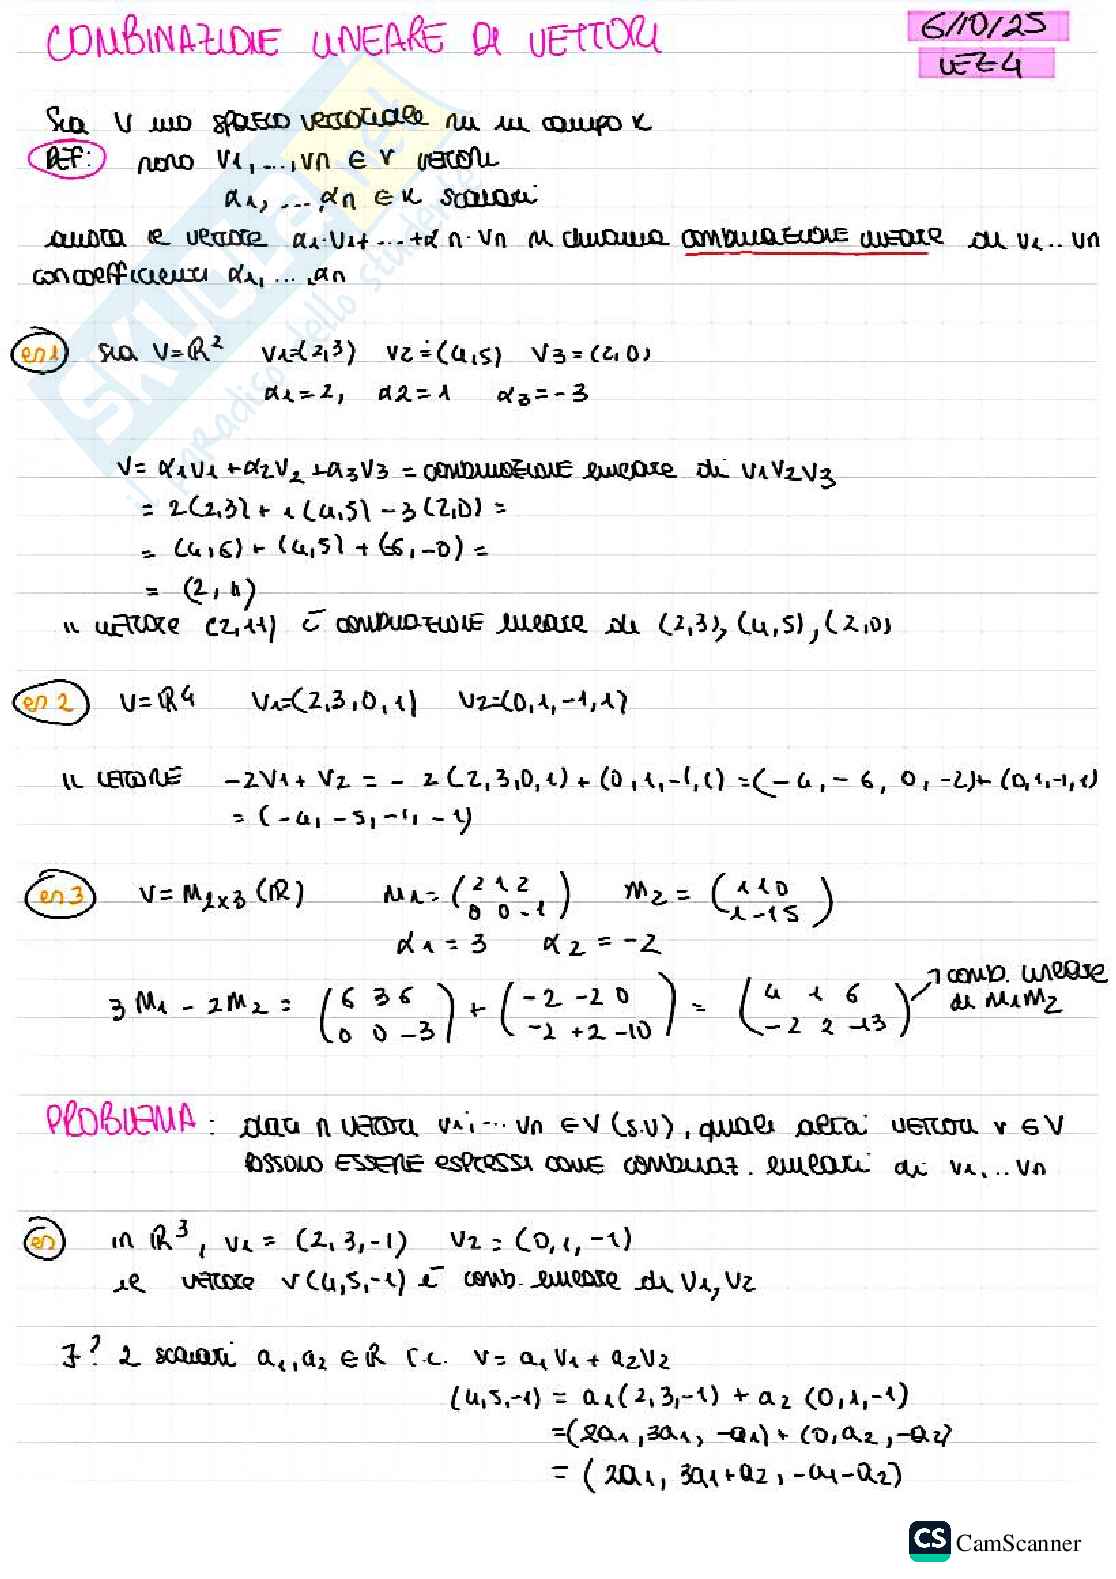 COMBINAZIONE LINEARE DI VETTORI
6/10/25
LEZ 4
Sia V uno spazio vettoriale su un campo K
DEF: siano v1, ..., vn ∈ V vettori
α1, ..., αn ∈ K scalari
allora il vettore α1·v1+...+αn·vn si chiama COMBINAZIONE lineare di v1..vn
con coefficienti α1, ..., αn
es 1 sia V=R² v1=(2,3) v2=(4,5) v3=(2,0)
α1=2, α2=1 α3=-3
V= α1v1+α2v2+α3v3 = COMBINAZIONE lineare di v1v2v3
= 2(2,3)+1(4,5)-3(2,0)=
= (4,6)+(4,5)+(-6,-0)=
= (2,11)
il vettore (2,11) è COMBINAZIONE lineare di (2,3),(4,5),(2,0)
es 2 V=R4 v1=(2,3,0,1) v2=(0,1,-1,1)
il vettore -2v1+v2 = -2(2,3,0,1)+(0,1,-1,1)=(-4,-6,0,-2)+(0,1,-1,1)
= (-4,-5,-1,-1)
es 3 V=M2x3(R) M1=(2 1 2 M2=(1 1 0
0 0 -1) 1 -1 5)
α1=3 α2=-2
3M1-2M2 = (6 3 6 + (-2 -2 0 = (4 1 6
0 0 -3) -2 +2 -10) -2 2 -13)
comb. lineare
di M1M2
PROBLEMA: dati n vettori v1,...vn ∈V (s.v), quali altri vettori v ∈V
possono ESSERE espressi come combinaz. lineari di v1,..vn
es in R³, v1=(2,3,-1) v2=(0,1,-1)
il vettore v(4,5,-1) è comb. lineare di v1,v2
∃? 2 scalari a1,a2 ∈R t.c. v=a1v1+a2v2
(4,5,-1)=a1(2,3,-1)+a2(0,1,-1)
=(2a1,3a1,-a1)+(0,a2,-a2)
=(2a1,3a1+a2,-a1-a2)
SKUOLA.net
il paradiso dello studente
CS CamScanner